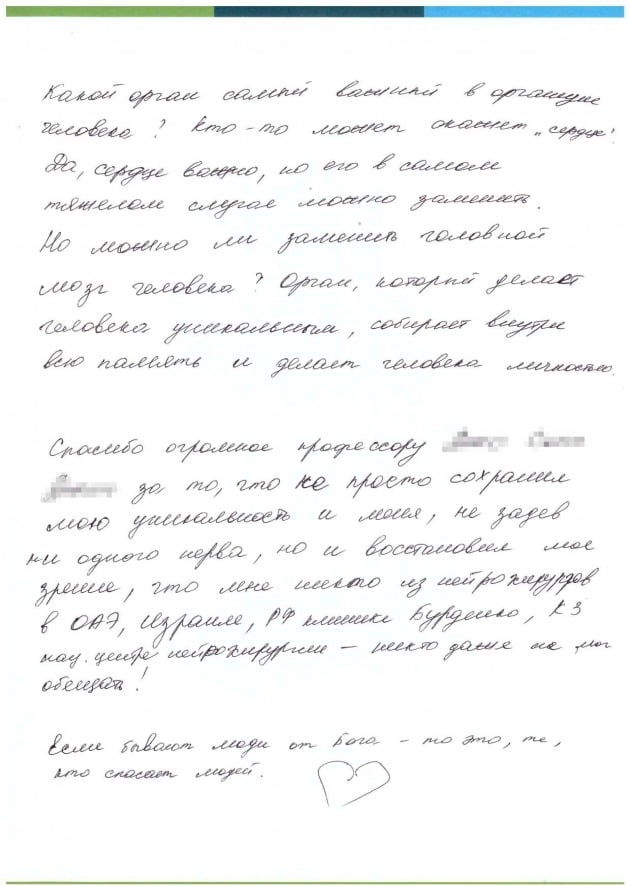 Какой орган самый важный в организме
человека? Кто-то может скажет „сердце".
Да, сердце важно, но его в самом
тяжелом случае можно заменить.
Но можно ли заменить головной
мозг человека? Орган, который делает
человека уникальным, собирает внутри
всю память и делает человека личностью.
Спасибо огромное профессору
за то, что не просто сохранил
мою уникальность и меня, не задев
ни одного нерва, но и восстановил мое
зрение, что мне никто из нейрохирургов
в ОАЭ, Израиле, РФ клинике Бурденко, КЗ
нац. центре нейрохирургии – никто даже не мог
обещать!
Если бывают люди от Бога – то это, те,
кто спасает людей.